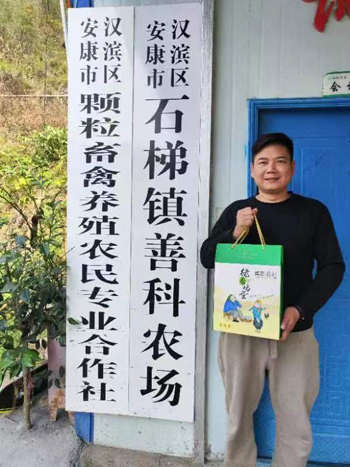 安康市 汉滨区 石梯镇善科农场
安康市 汉滨区 颗粒畜禽养殖农民专业合作社